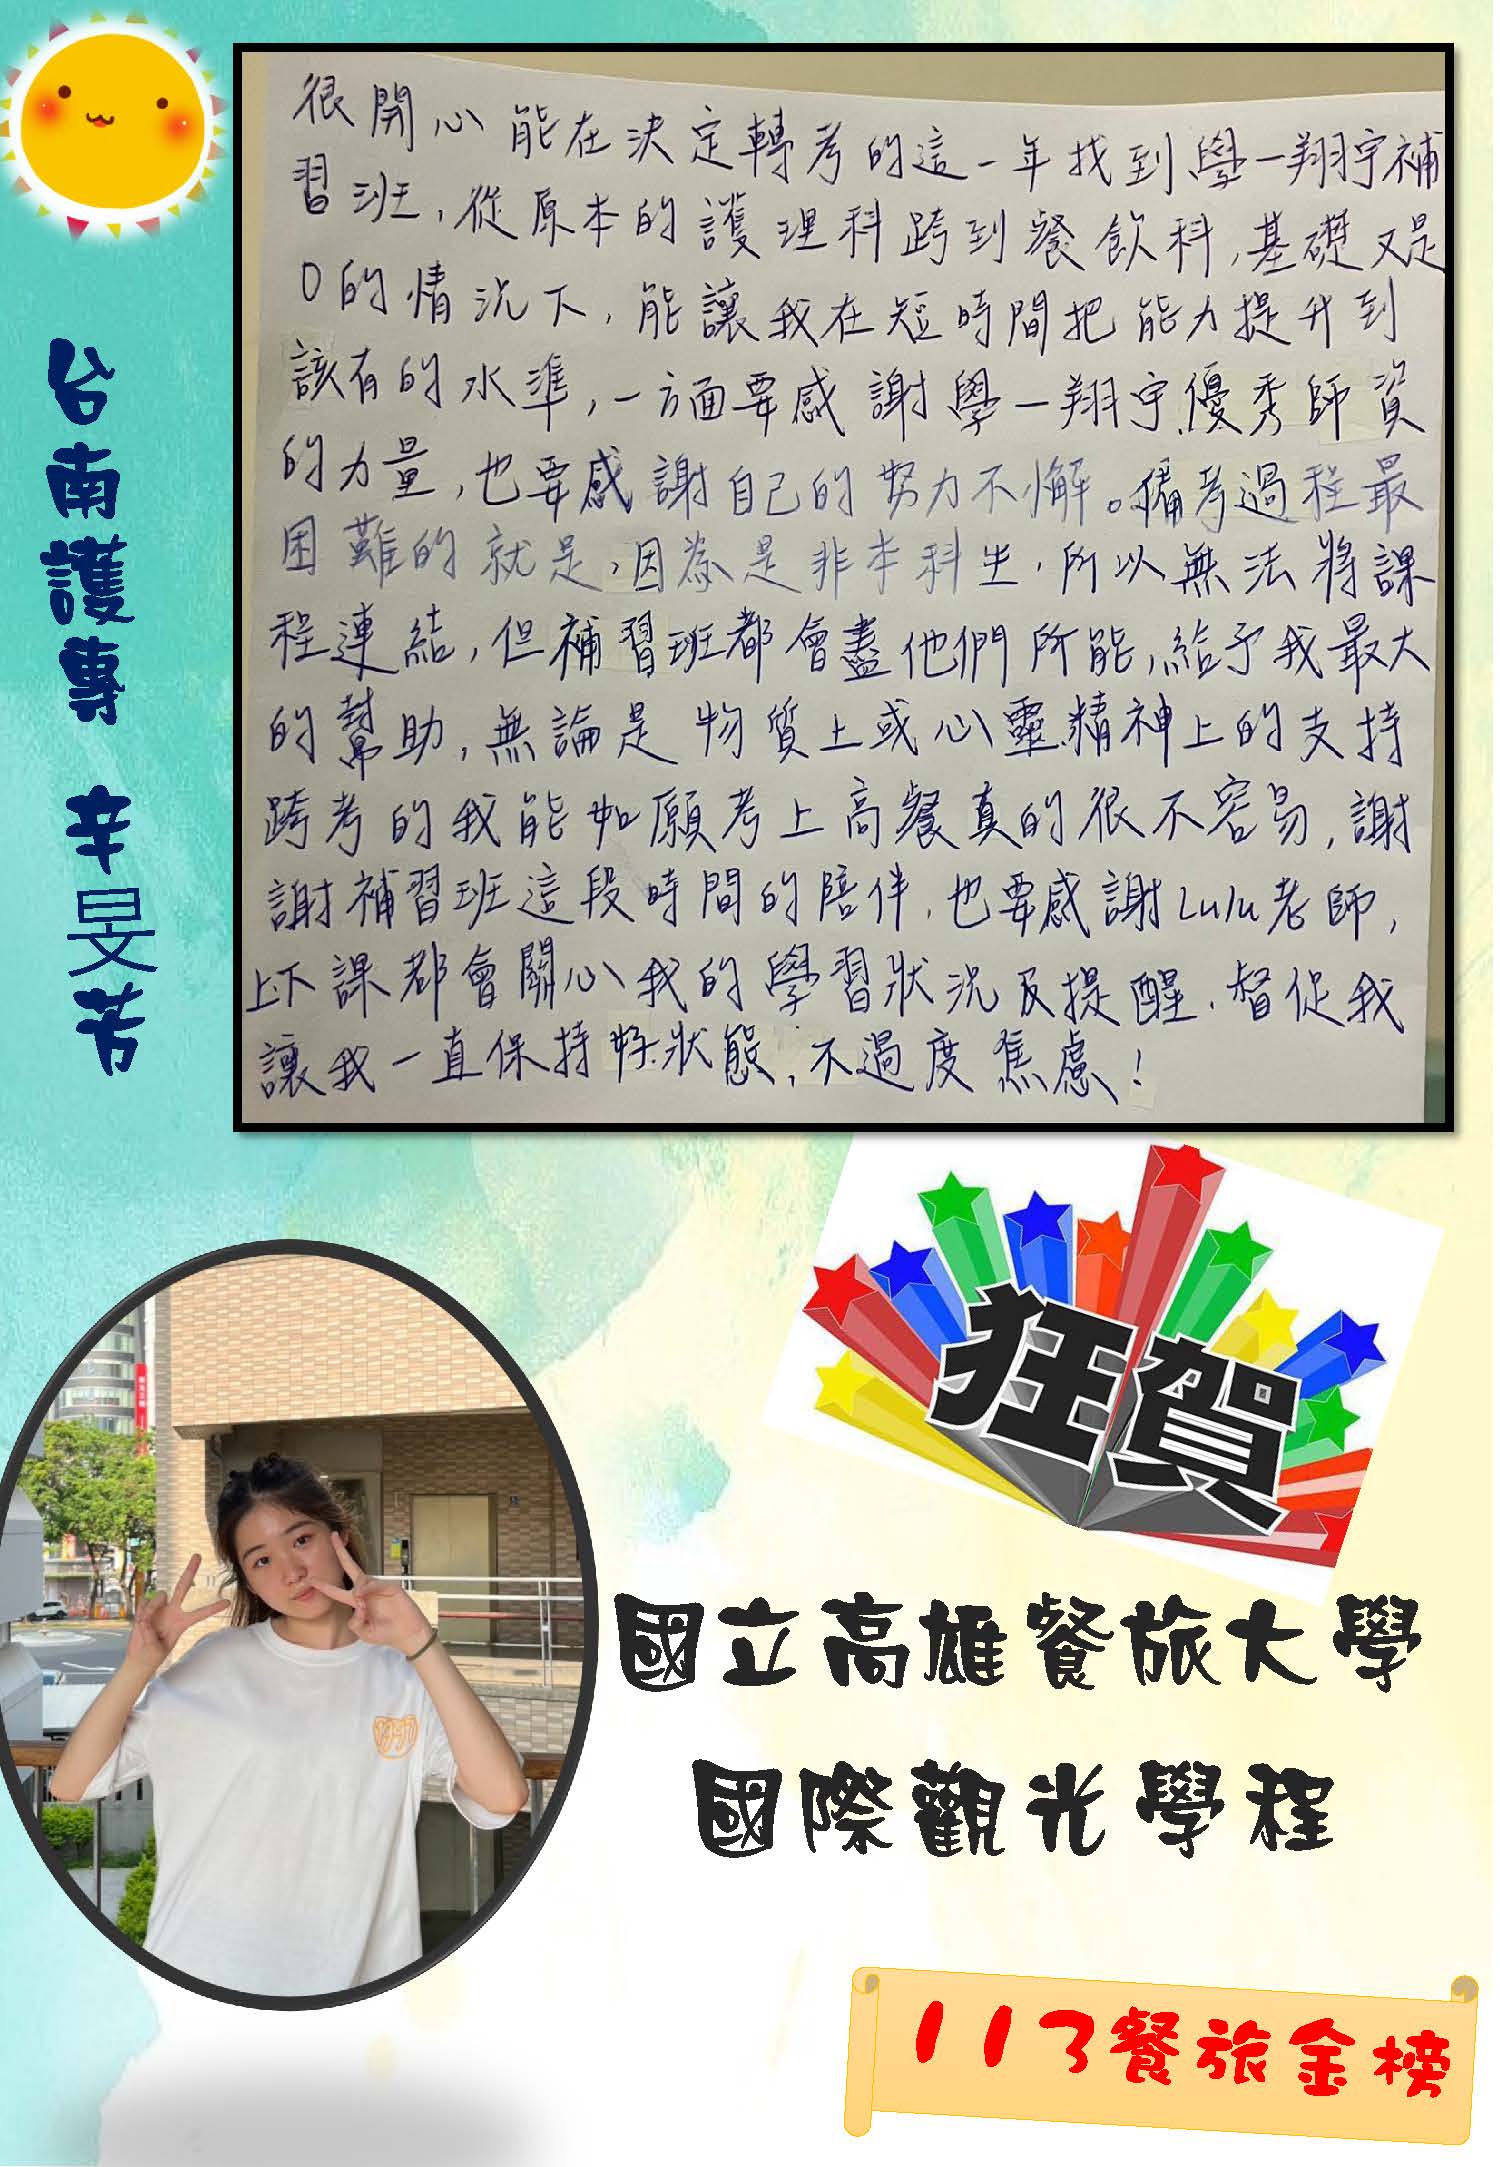 很開心能在決定轉考的這一年找到學一翔宇補
習班,從原本的護理科跨到餐飲科,基礎又是
0的情況下,能讓我在短時間把能力提升到
該有的水準,一方面要感謝學一翔宇優秀師資
的力量,也要感謝自己的努力不懈。備考過程最
困難的就是,因為是非本科生,所以無法將課
程連結,但補習班都會盡他們所能,給予我最大
的幫助,無論是物質上或心靈精神上的支持
跨考的我能如願考上高餐真的很不容易,謝
謝補習班這段時間的陪伴,也要感謝Lulu老師,
上下課都會關心我的學習狀況及提醒.督促我
讓我一直保持好狀態,不過度焦慮!
台南護專 辛旻芳
狂賀
1997
國立高雄餐旅大學
國際觀光學程
113餐旅金榜